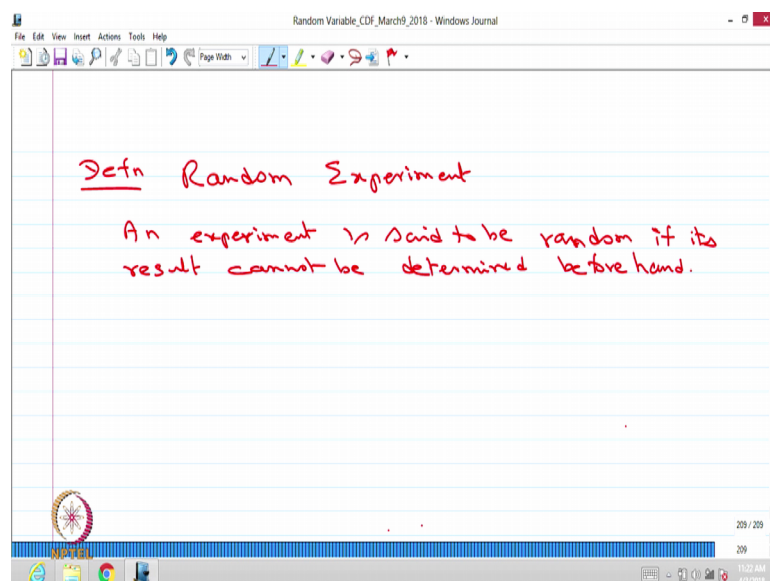 Random Variable_CDF_March9_2018 - Windows Journal
File Edit View Insert Actions Tools Help
Page Width
Defn Random Experiment
An experiment is said to be random if its
result cannot be determined beforehand.
209 / 209
NPTEL
209
11:22 AM